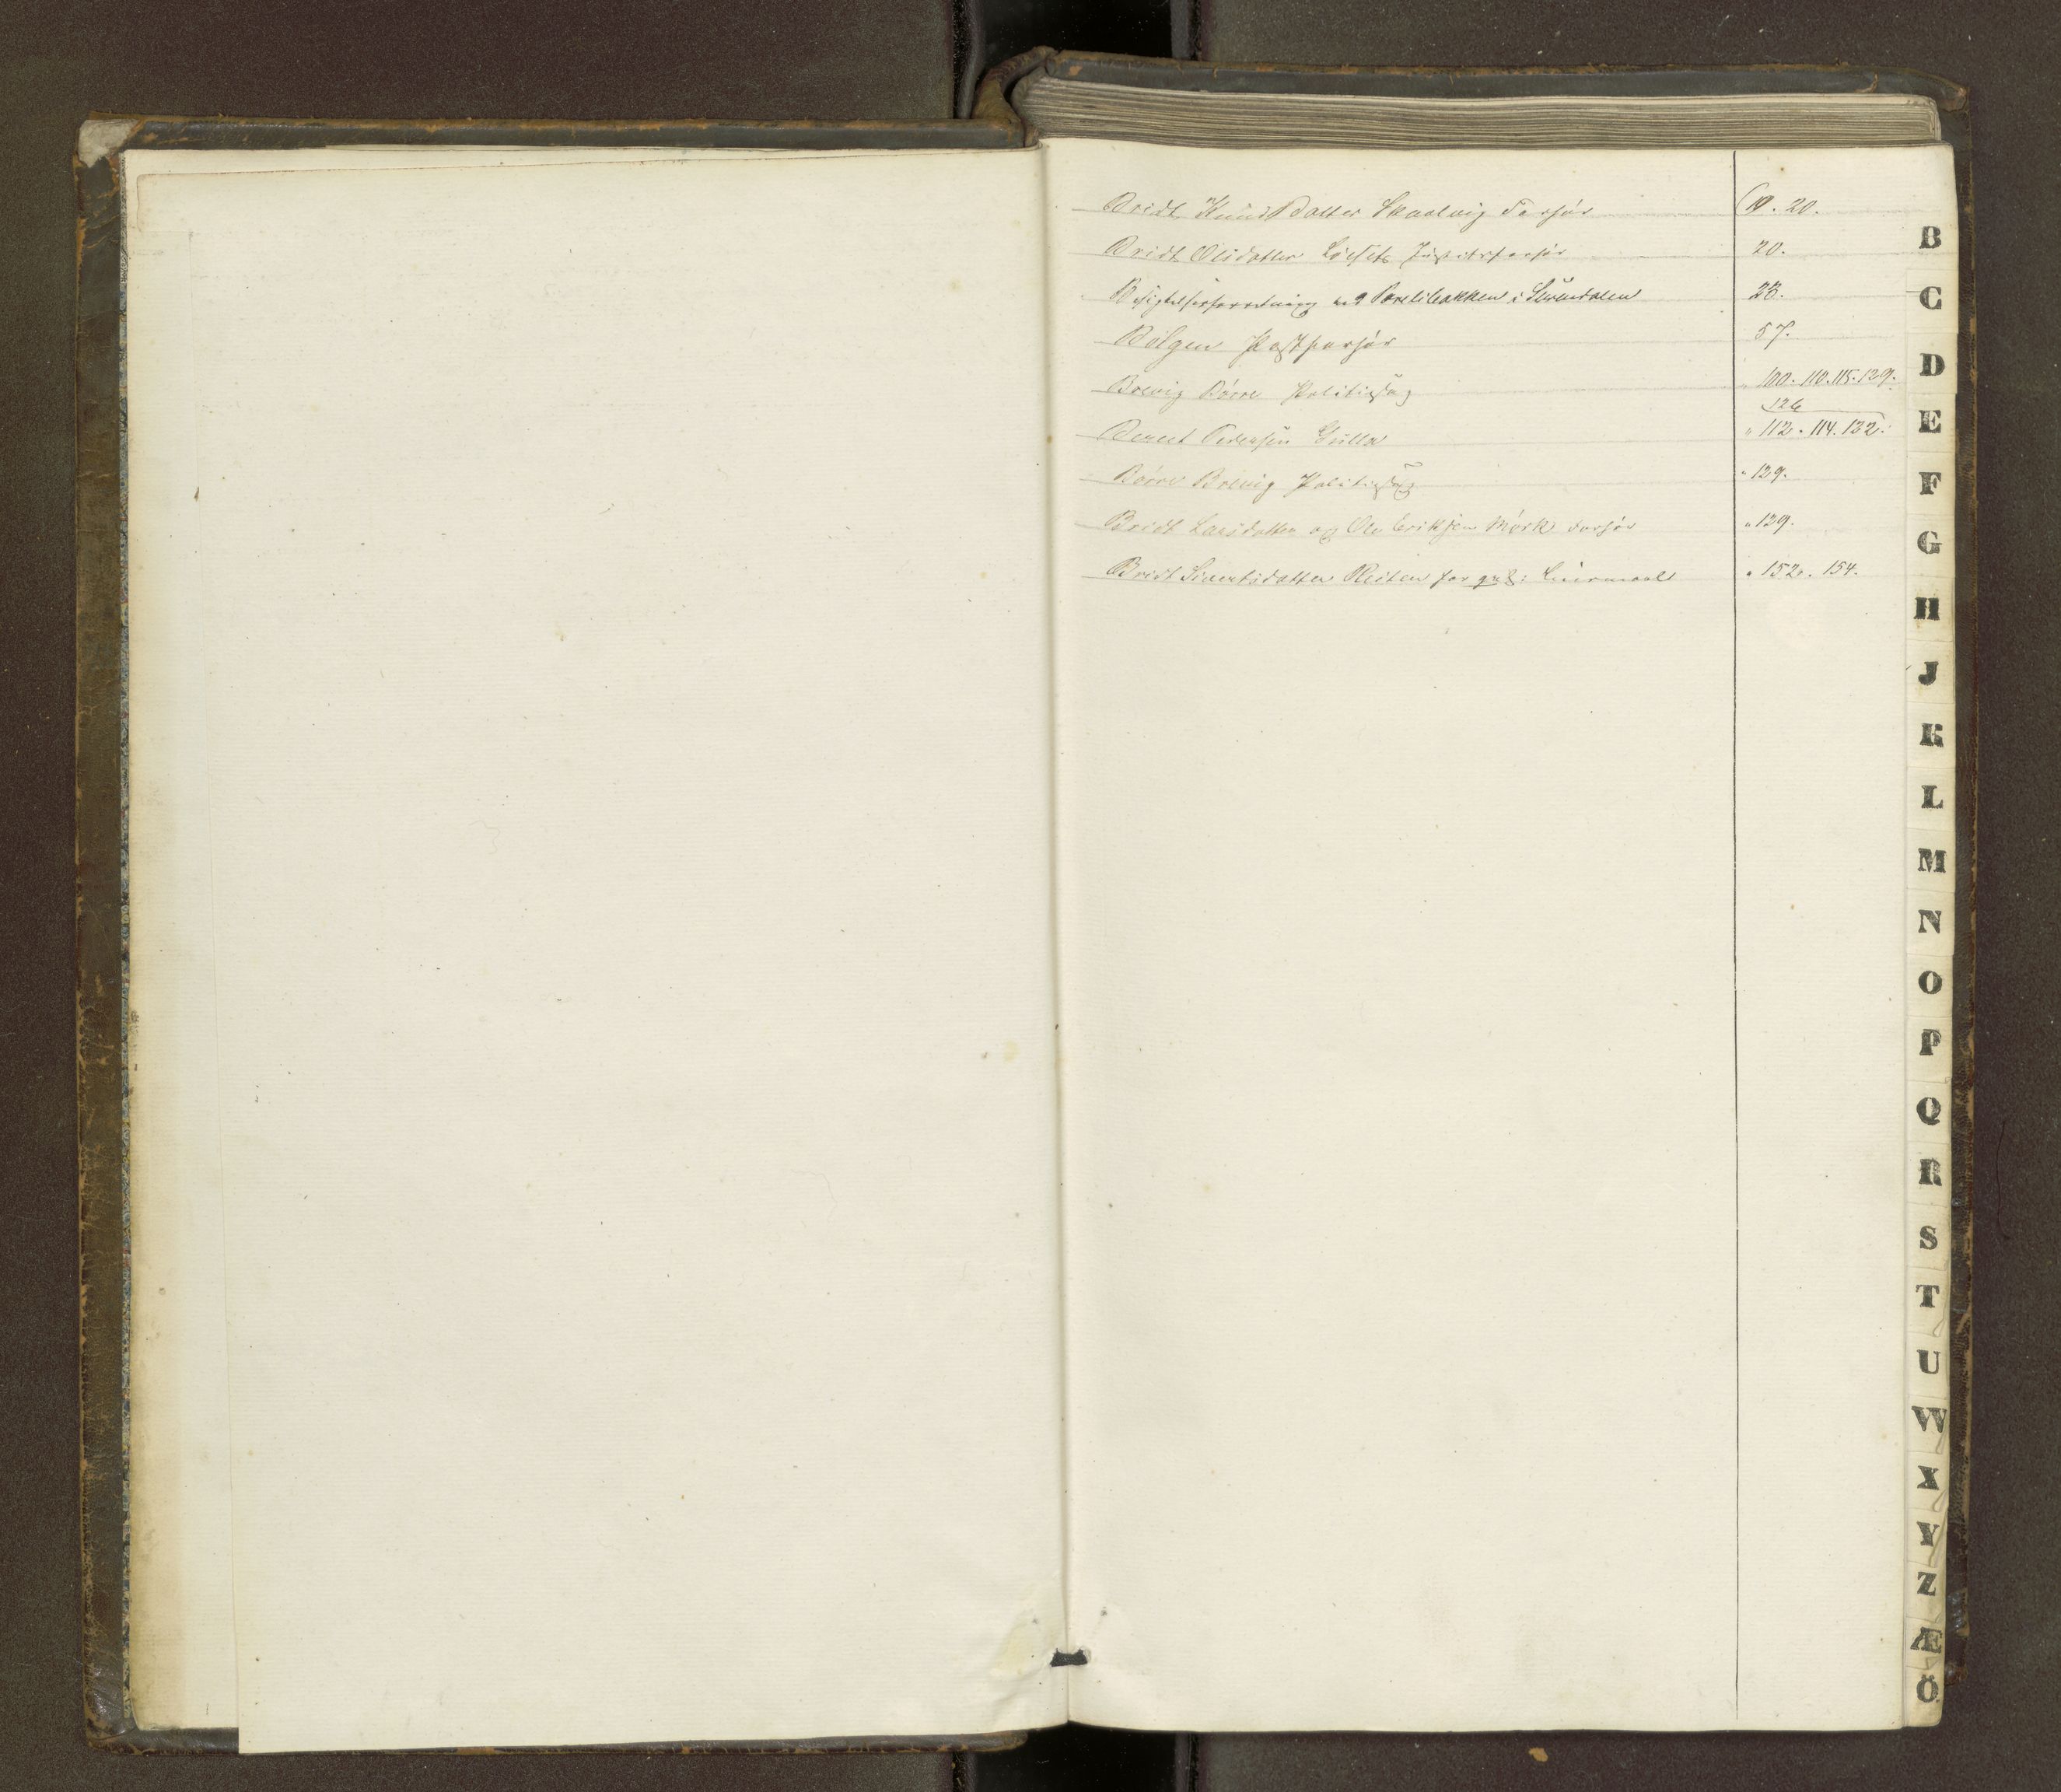 Bridt KnudsDatter Skaalvig Forhör 19. 20.
Bridt Olsdatter Justitsforhör 20.
Besigtelsesforretning ved i Surendalen 23.
Bölgen Postforhör 57.
Brevig Börre Politisag 100. 110. 115. 129.
126
Berent Pedersen Gulla 112. 114. 132.
Börre Brevig Politisag 129.
Bridt Larsdatter og Ole Eriksen Mörk Forhör 139.
Bridt Sivertsdatter Reiten for qval: Leiermaal 152. 154.
B
C
D
E
F
G
H
J
K
L
M
N
O
P
Q
R
S
T
U
W
X
Y
Z
Æ
Ö